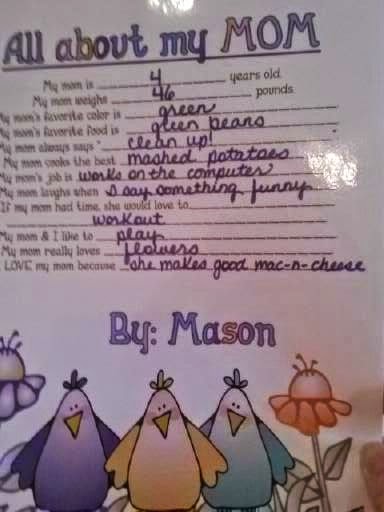 All about my MOM
My mom is 4 years old.
My mom weighs 46 pounds.
My mom's favorite color is green
My mom's favorite food is green beans
My mom always says " clean up!
My mom cooks the best mashed potatoes
My mom's job is works on the computer
My mom laughs when I say something funny
If my mom had time, she would love to
workout
My mom & I like to play
My mom really loves flowers
I LOVE my mom because she makes good mac-n-cheese
By: Mason